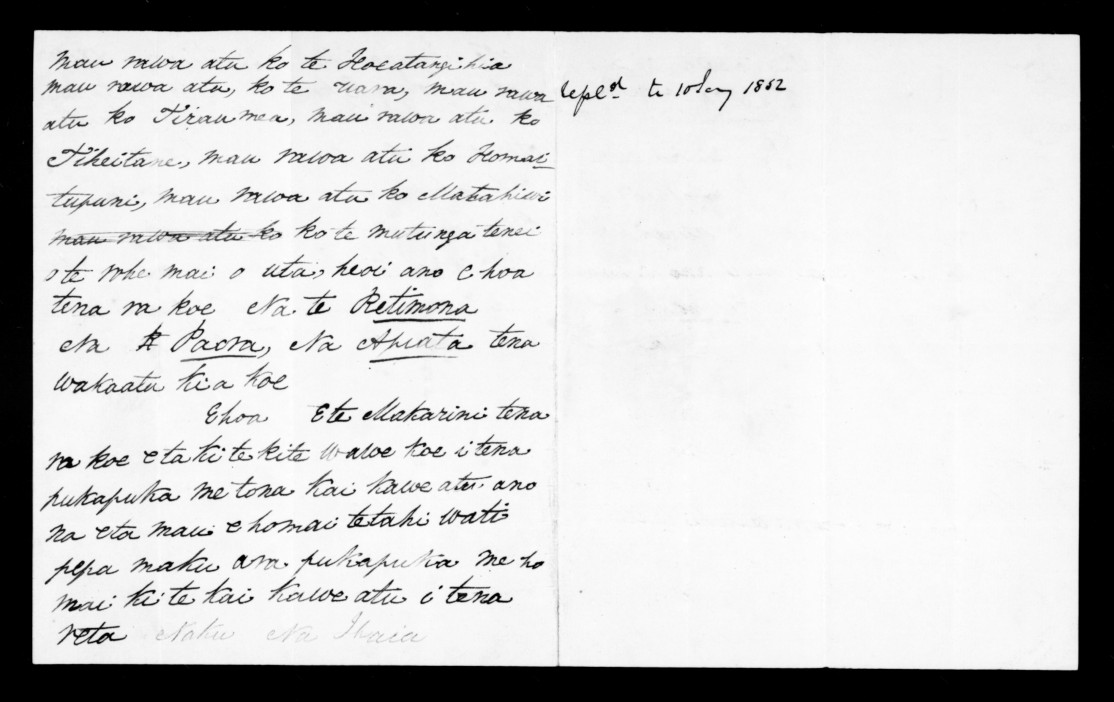 mau rawa atu ko te Hoeatangihia
mau rawa atu, ko te uara, mau rawa
atu ko Tiraumea, mau rawa atu ko
Tiheitane, mau rawa atu ko Homai=
tupuni, mau rawa atu ko Matahiwi
mau rawa atu ko ko te mutunga tenei
o te rohe mai o uta, heoi ano e hoa
tena ra koe Na te Retimona
Na Paora, Na Apiata tena
wakaatu kia koe
Ehoa Ete Makarini tena
ra koe eta ki te kite wawe koe i tena
pukapuka me tona kai kawe atu ano
na eta mau e homai tetahi wati
pepa maku ara pukapuka me ho
mai ki te kai kawe atu i tena
reta Naku Na Ihaia
Repl.d te 10 Jany 1852